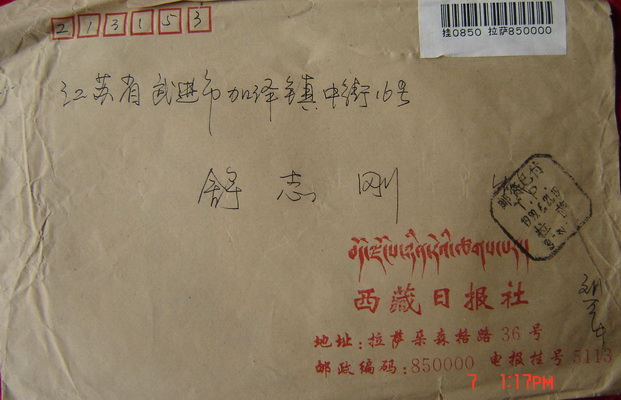 213153
挂0850 拉萨850000
江苏省武进市加泽镇中街16号
舒志刚
邮资已付
T.P.
拉萨
西藏日报社
地址:拉萨朵森格路36号
邮政编码:850000 电报挂号5113
7 1:17PM